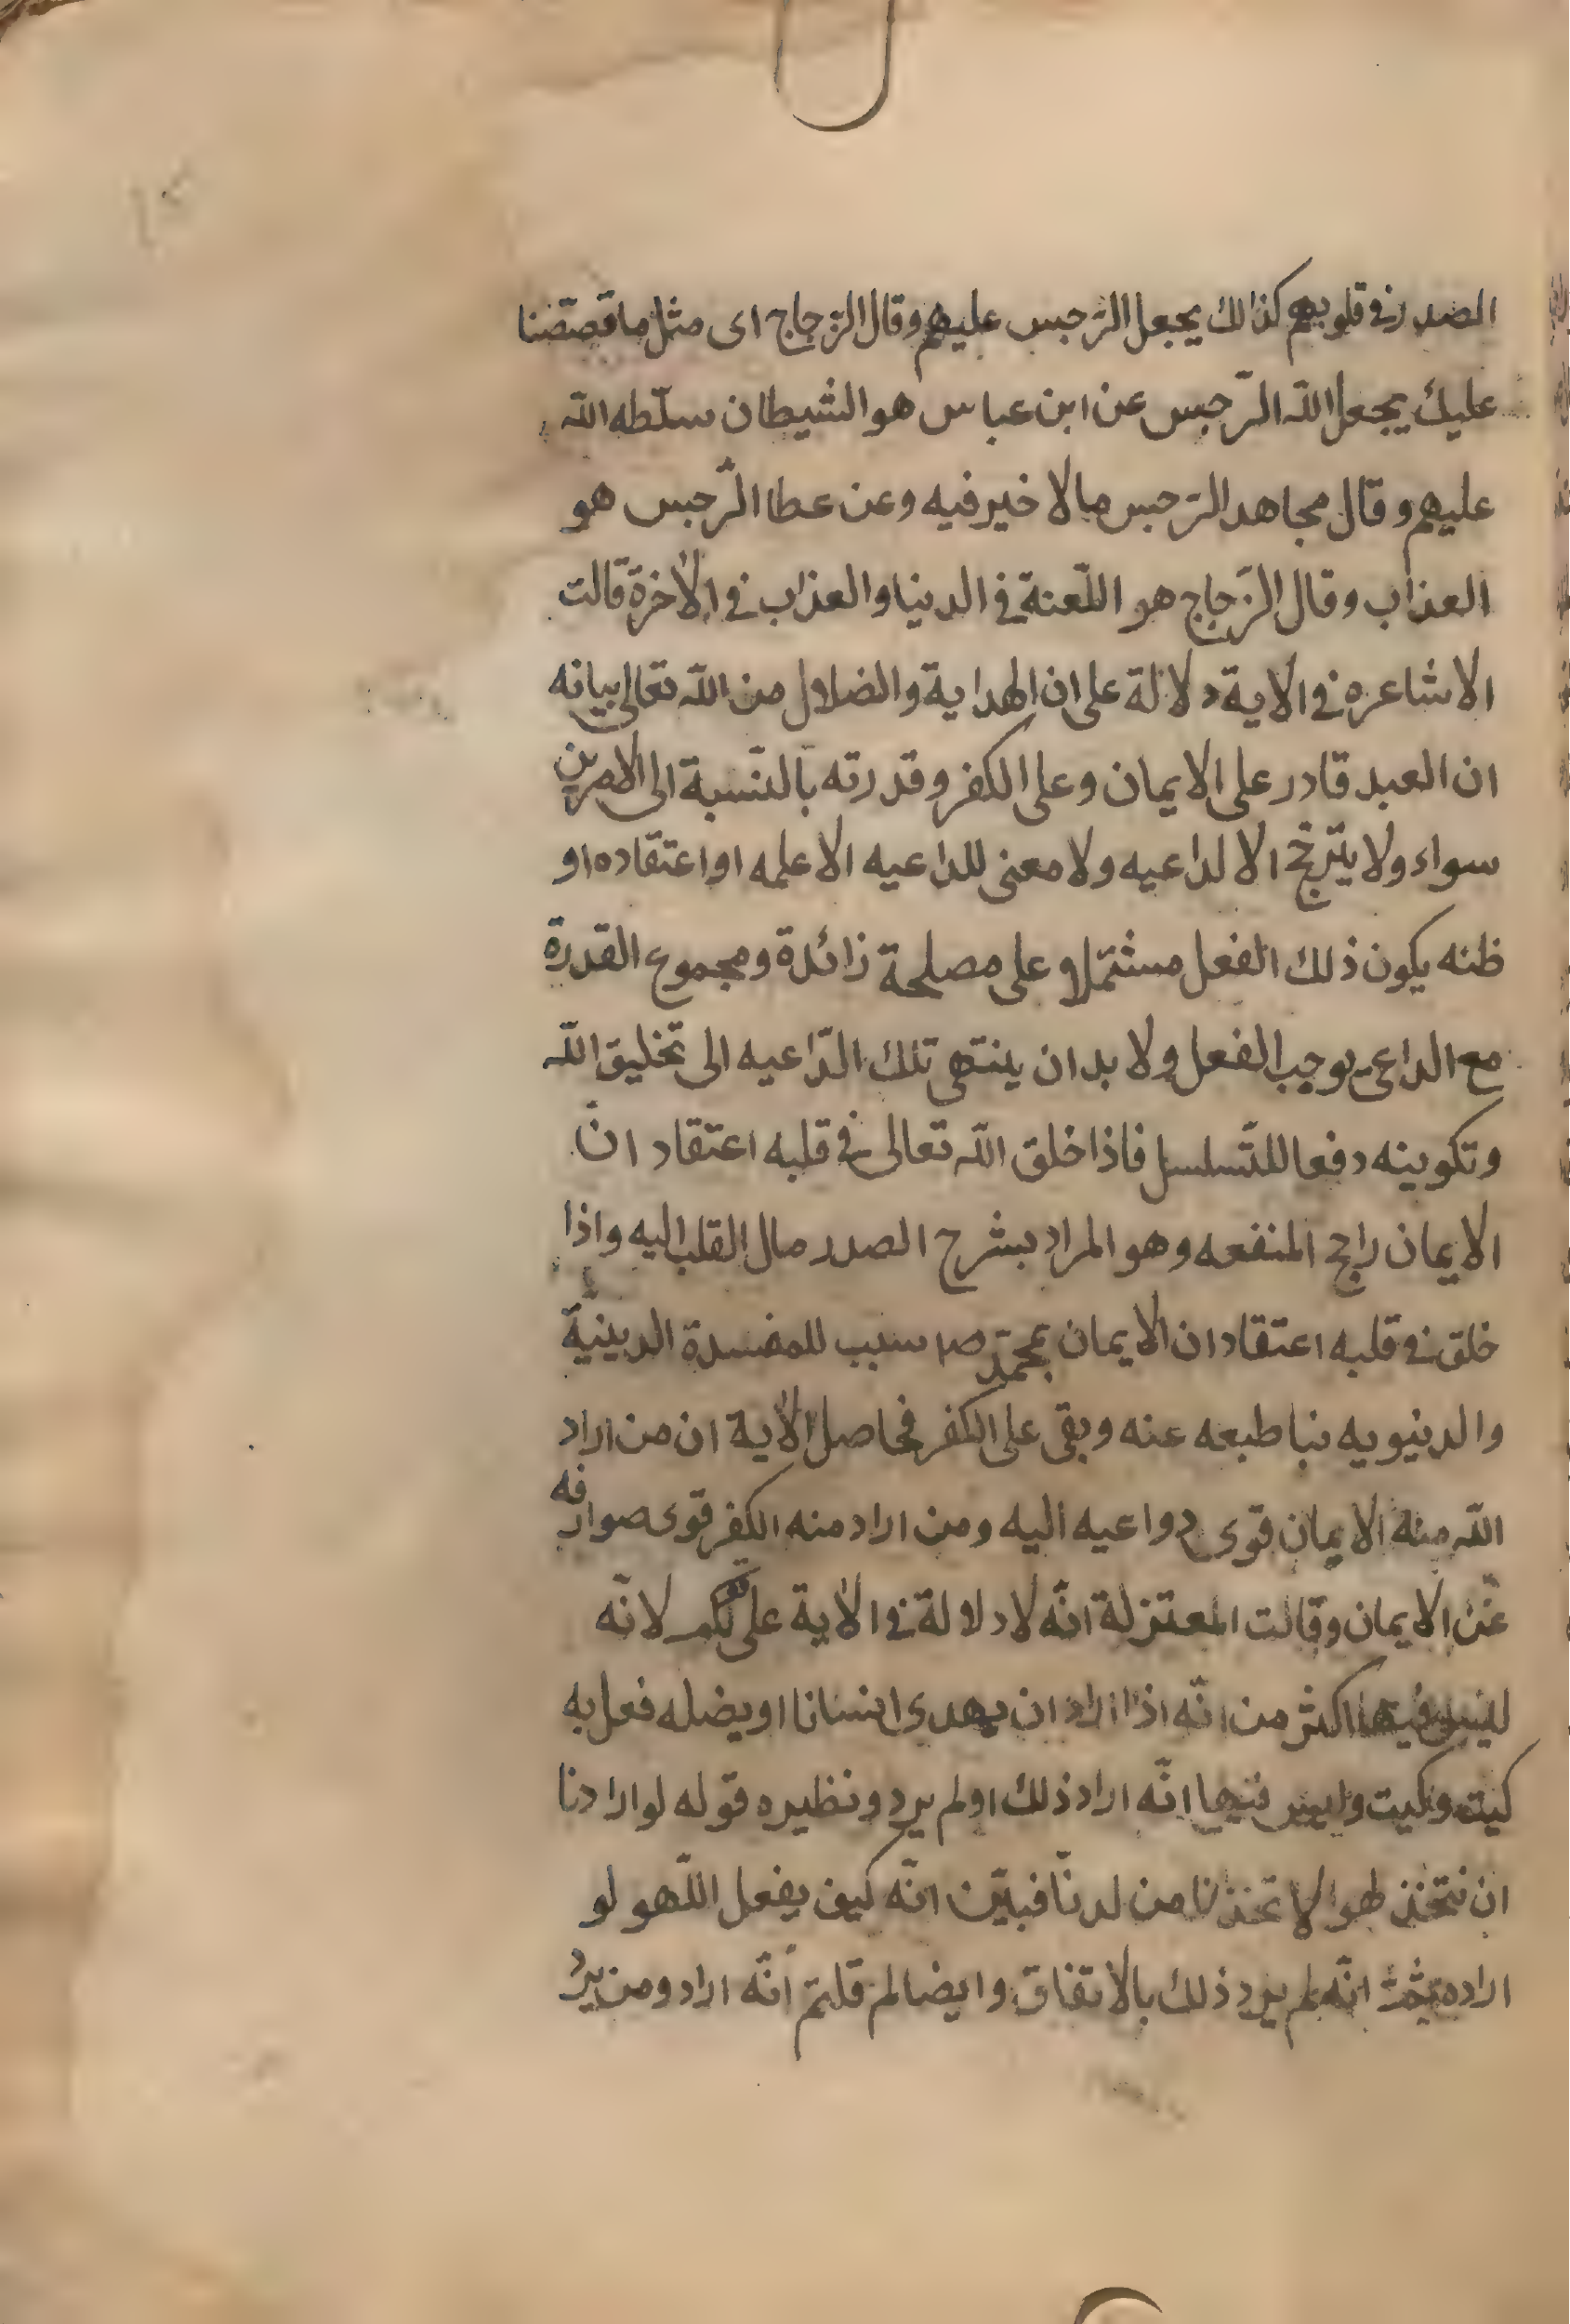 الصدر في قلوبهم كذالك يجعل الرّجس عليهم وقال الزّجاج اى مثل ما قصصنا
عليك يجعل اللّه الرّجس عن ابن عباس هو الشيطان سلّطه اللّه
عليهم وقال مجاهد الرّجس ما لا خير فيه وعن عطا الرّجس هو
العذاب وقال الزّجاج هو اللّعنة في الدنيا والعذاب في الآخرة قالت
الاشاعره في الآية دلالة على ان الهداية والضلال من اللّه تعالى بيانه
ان العبد قادر على الايمان وعلى الكفر وقدرته بالنّسبة الى الامرين
سواء ولا يترجّح الا لداعيه ولا معنى للداعيه الا علمه او اعتقاده او
ظنه يكون ذلك الفعل مشتملا على مصلحة زائدة ومجموع القدرة
مع الداعى يوجب الفعل ولا بد ان ينتهى تلك الدّاعيه الى تخليق اللّه
وتكوينه دفعا للتّسلسل فاذا خلق اللّه تعالى في قلبه اعتقاد انّ
الايمان راجح المنفعه وهو المراد بشرح الصدر مال القلب اليه واذا
خلق في قلبه اعتقاد ان الايمان بمحمّد ص سبب للمفسدة الدينيّة
والدنيويه نبا طبعه عنه وبقى على الكفر فحاصل الآية ان من اراد
اللّه منه الايمان قوى دواعيه اليه ومن اراد منه الكفر قوى صوارفه
عن الايمان وقالت المعتزلة انّه لا دلالة في الآية على لانّه
ليس فيها اكثر من انّه اذا اراد ان يهدى انسانا او يضله فعل به
كيت وكيت وليس فيها انّه اراد ذلك او لم يرد ونظيره قوله لو اردنا
ان نتخذ لهوا لاتخذنا من لدنّا فبيّن انّه كيف يفعل اللّهو لو
اراده انّه لم يرد ذلك بالاتفاق وايضا لم قلتم انّه اراد ومن يرد